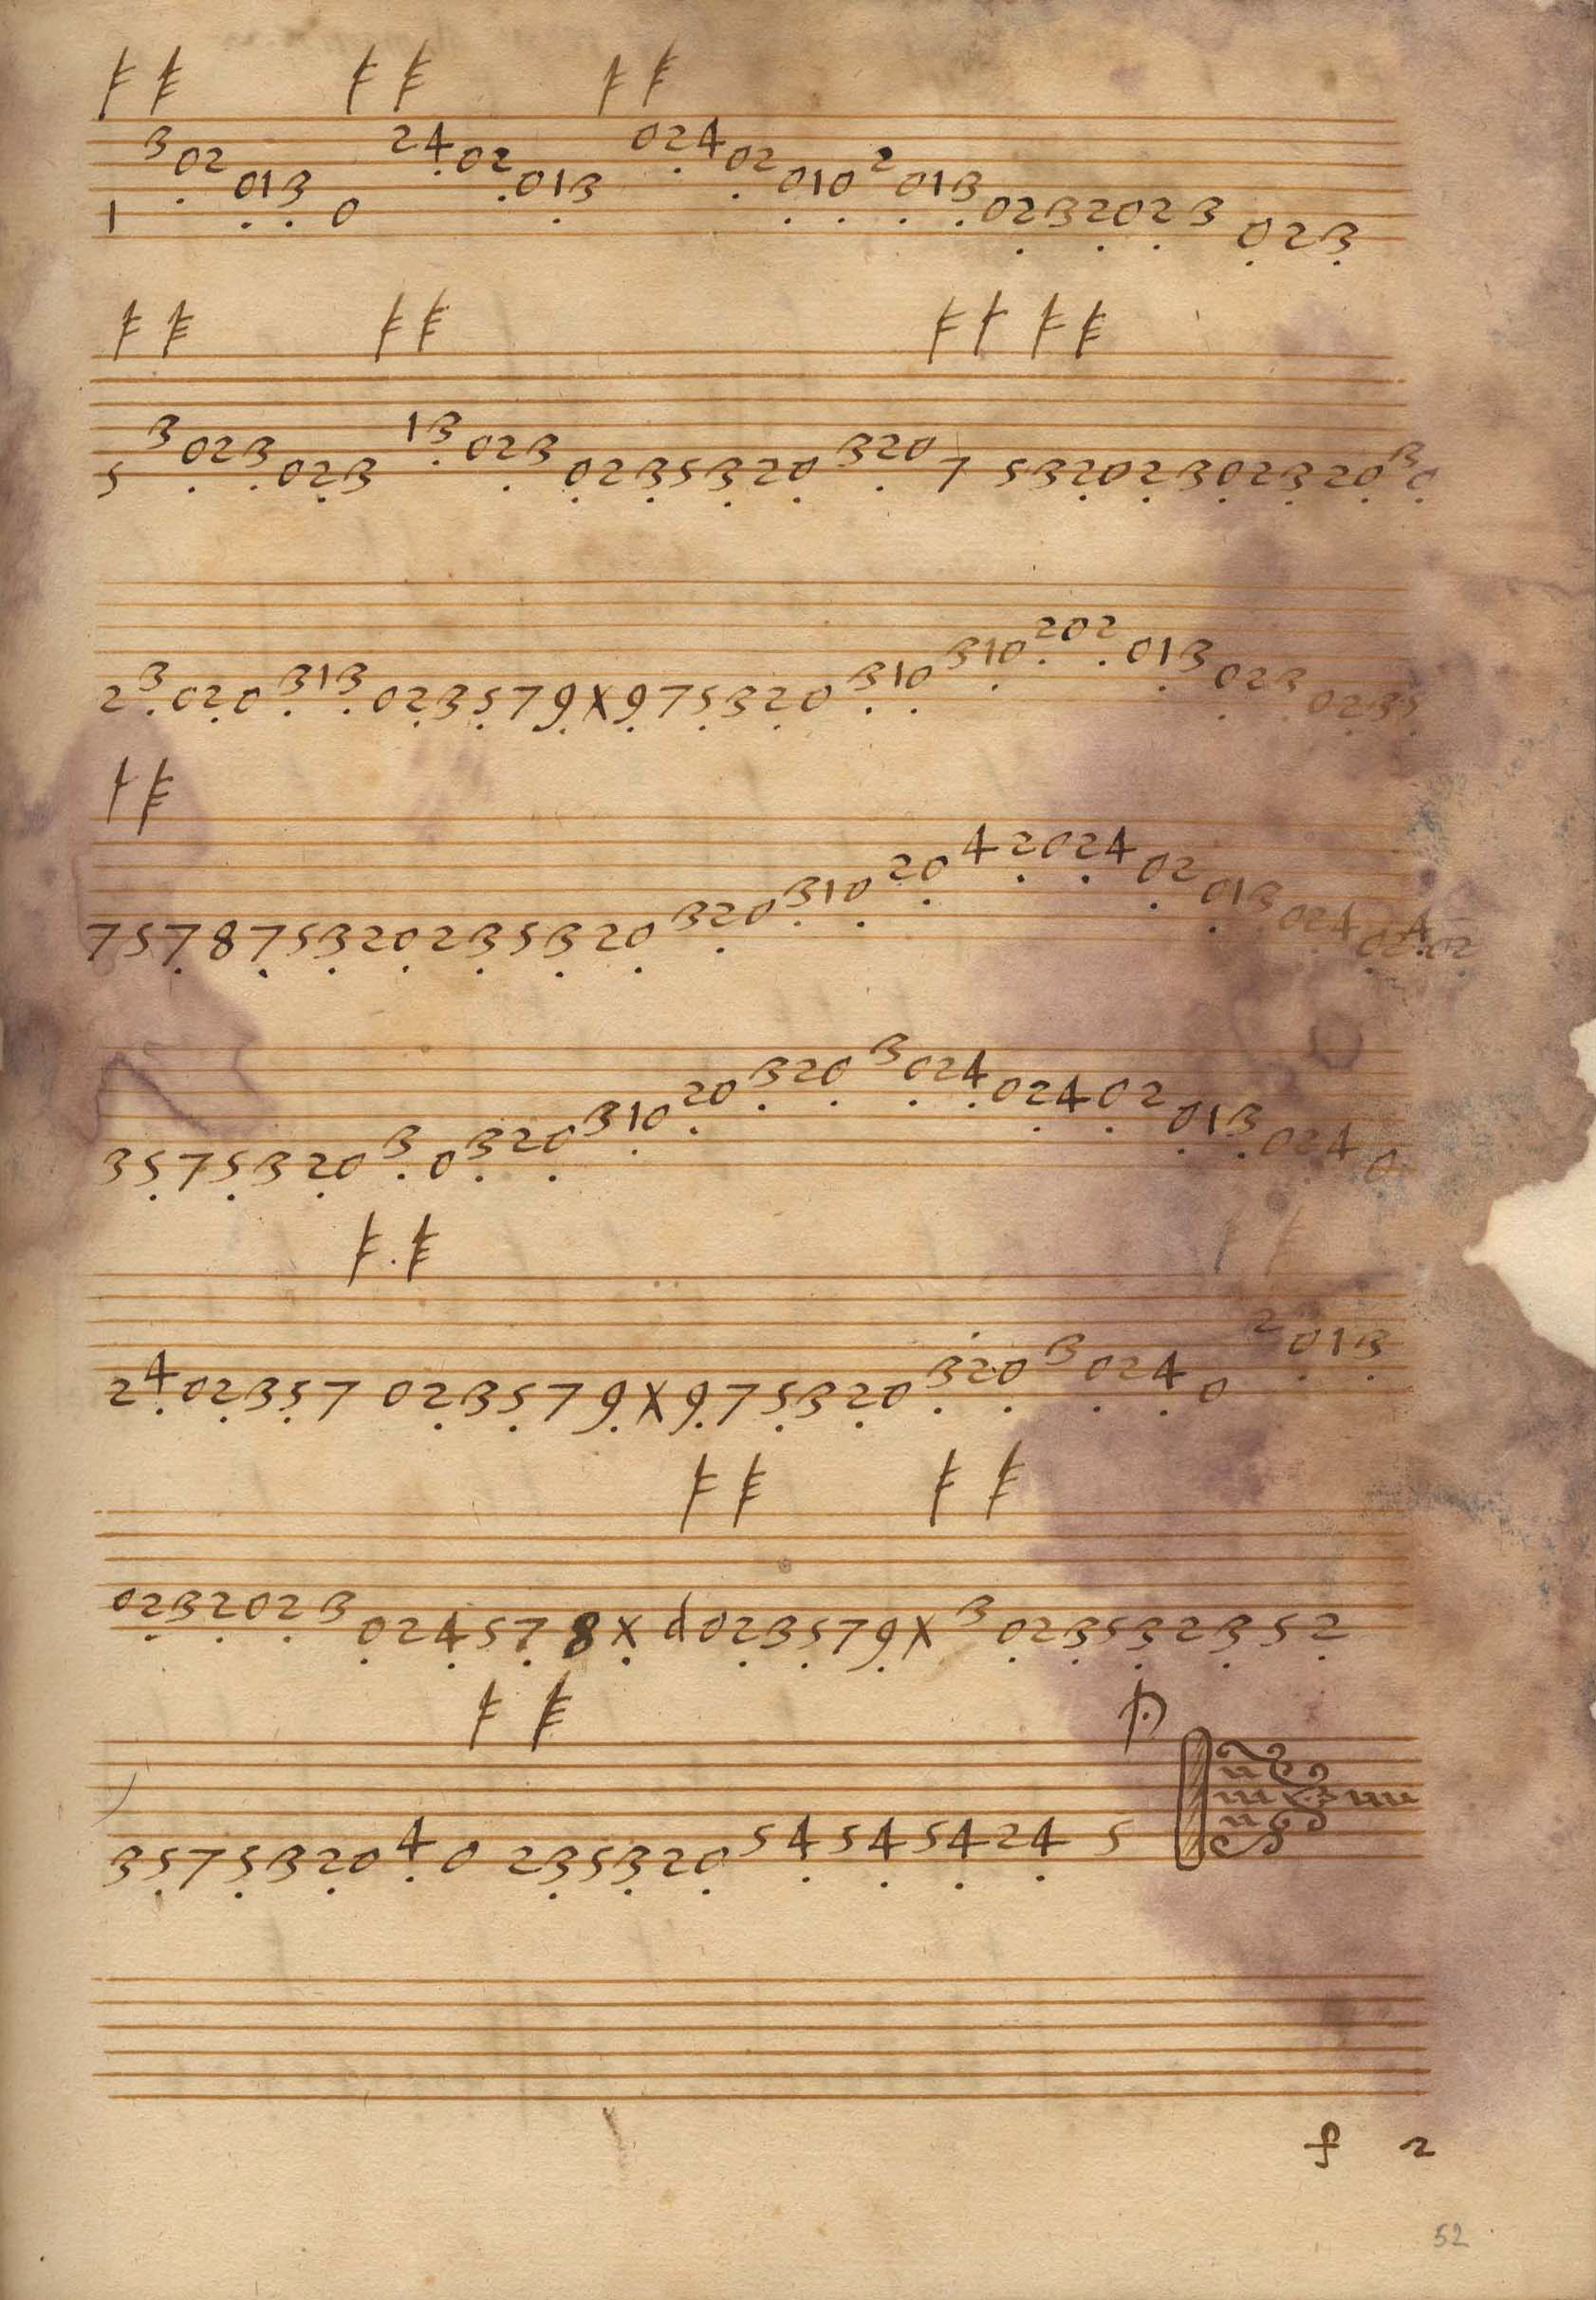 3 02 013 1 0 24 02 013 024 02 010 2 013 0232023 023
5 3 023 023 13 023 0235320 320 7 532023023203 0
2 3 020 313 023579X975320 310 310 202 013 023 0235
757875320235320 320 310 20 42024 02 013 024 02402
3575320 3 0 320 310 20 320 3 024 02402 013 024 0
2 4 02357 023579X975320 320 3 024 0 2 013
0232023 024578X d023579X 3 023532352
3575320 4 0 235320 54545424 5
f 2
52